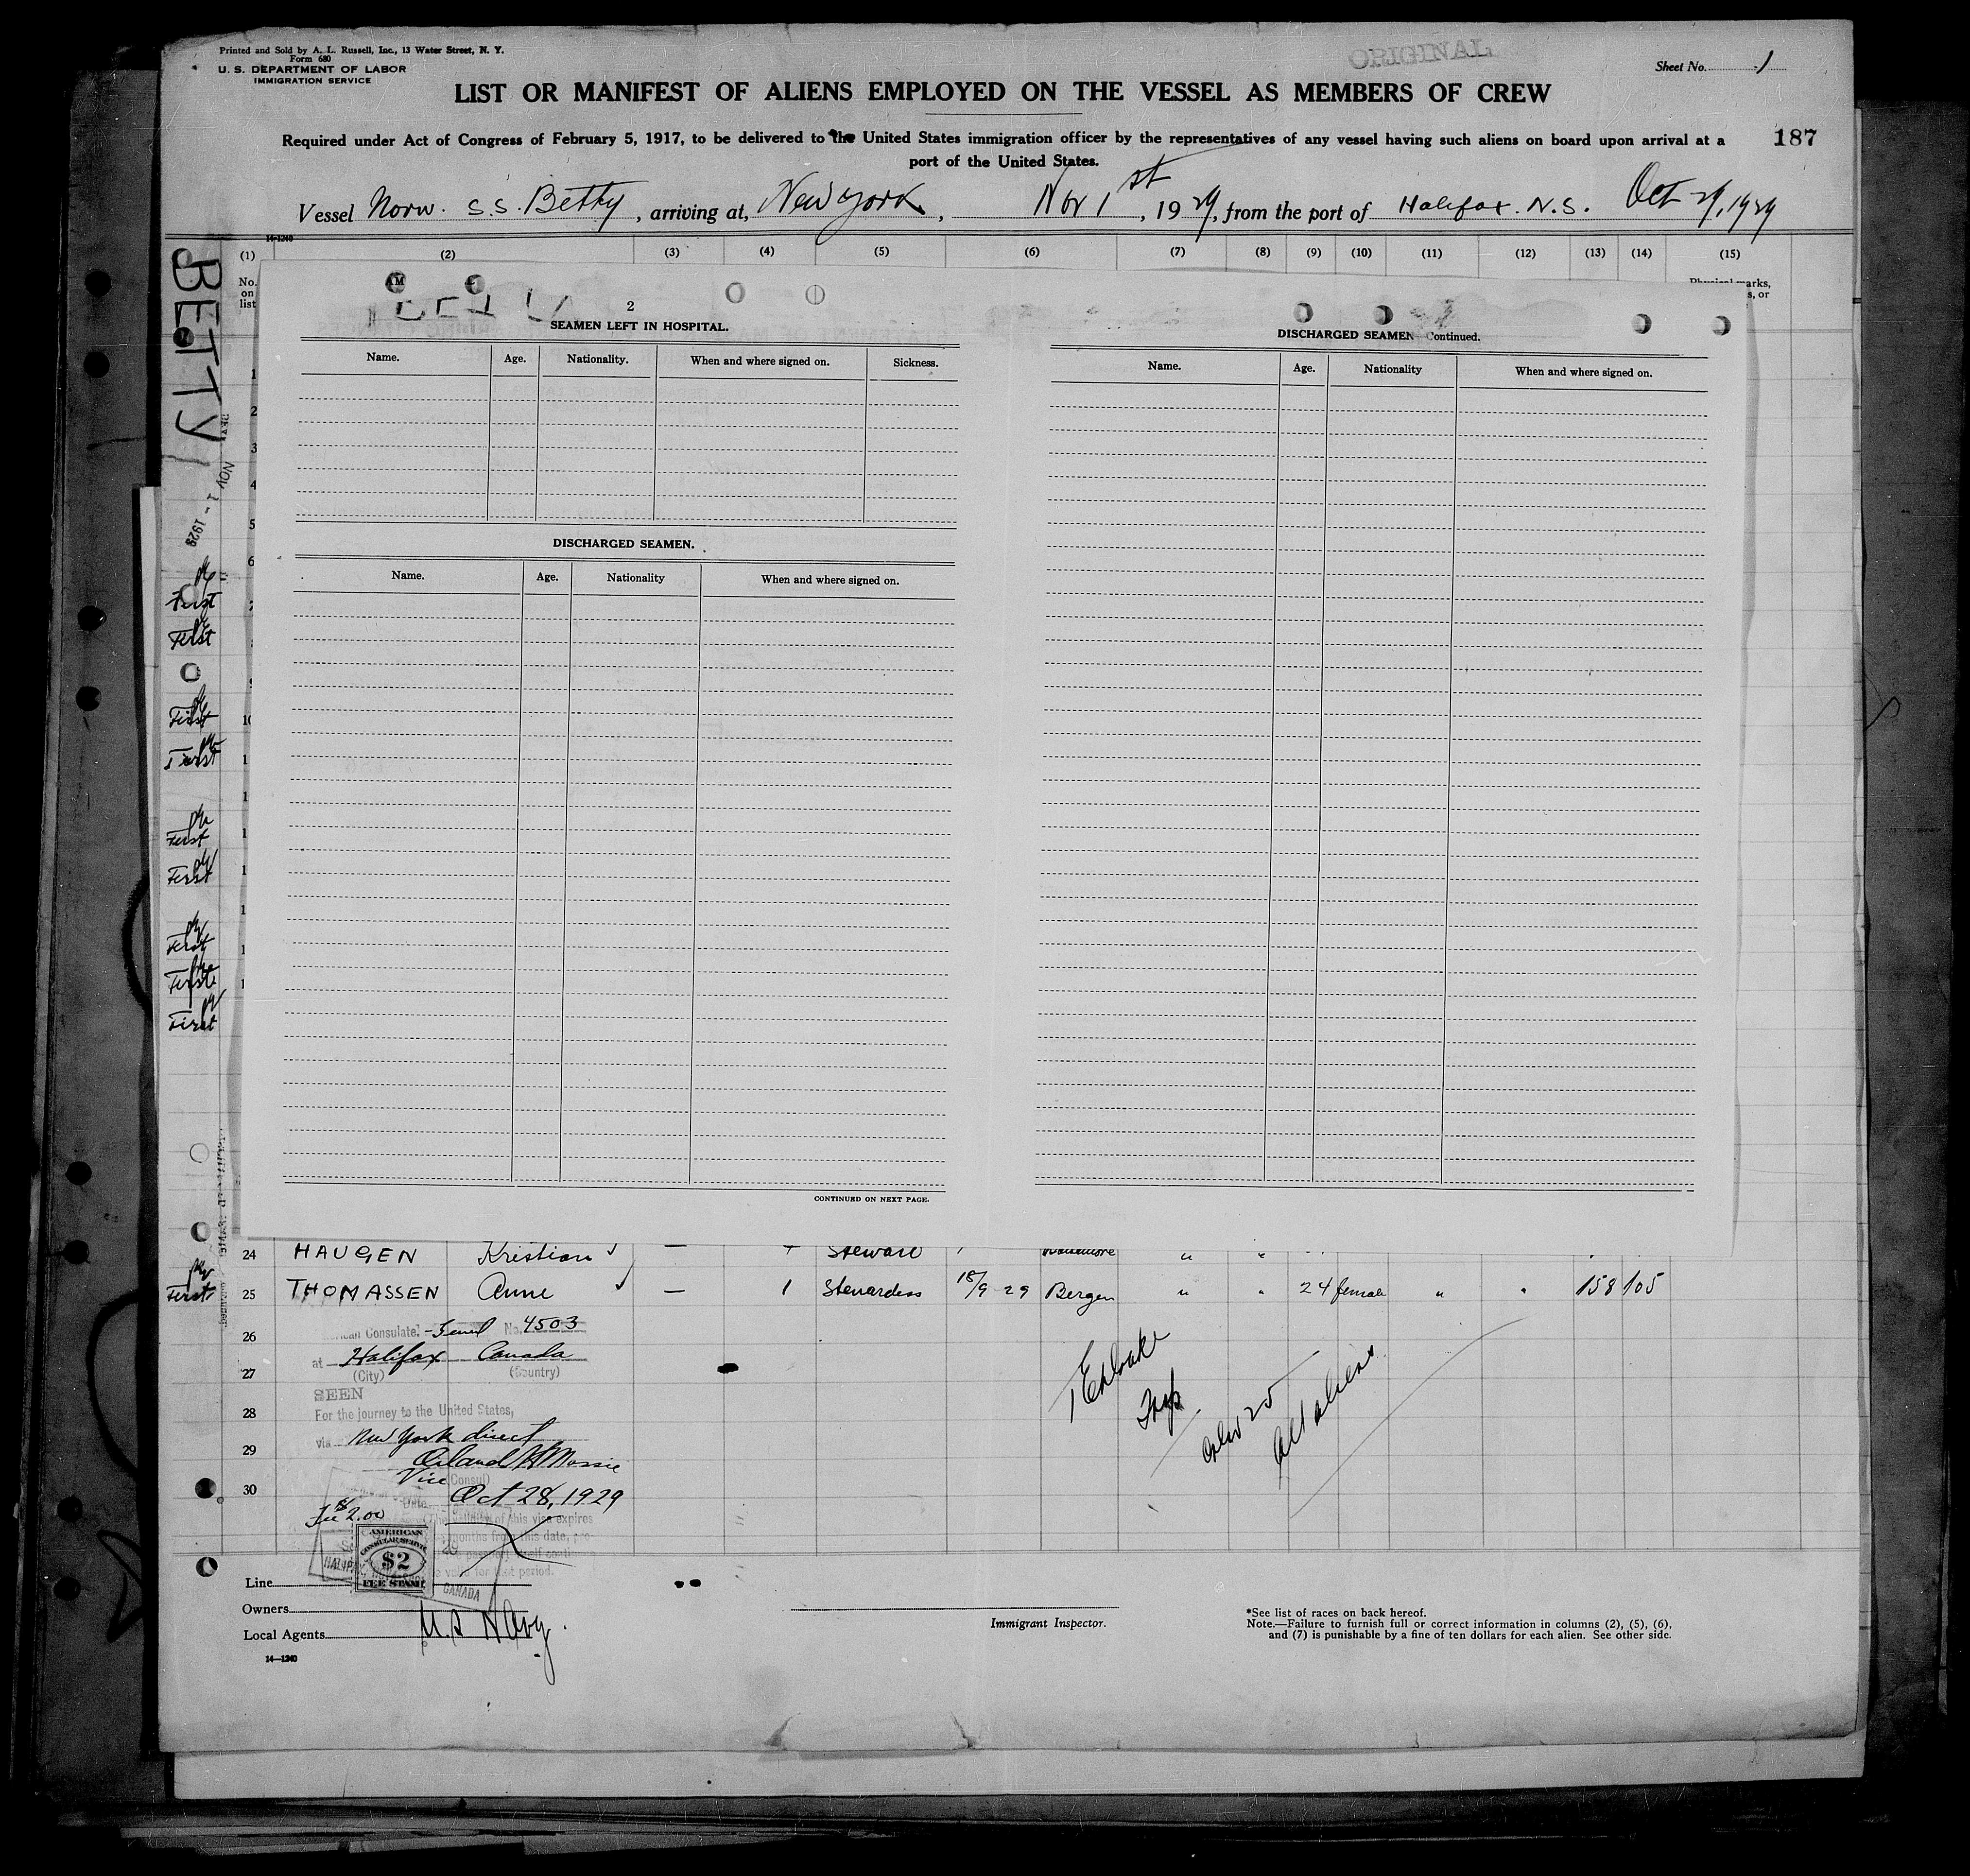 Printed and Sold by A. L. Russell, Inc., 13 Water Street, N. Y.
Form 680
U. S. DEPARTMENT OF LABOR
IMMIGRATION SERVICE
ORIGINAL
Sheet No. 1
LIST OR MANIFEST OF ALIENS EMPLOYED ON THE VESSEL AS MEMBERS OF CREW
Required under Act of Congress of February 5, 1917, to be delivered to the United States immigration officer by the representatives of any vessel having such aliens on board upon arrival at a
port of the United States.
187
Vessel Norw. S.S. Betty, arriving at, New York, Nov 1st, 1929, from the port of Halifax. N.S. Oct 29, 1929
14-1240
(1) (2) (3) (4) (5) (6) (7) (8) (9) (10) (11) (12) (13) (14) (15)
No. on list
BETTY
NOV 1 - 1929
2
SEAMEN LEFT IN HOSPITAL.
Name. Age. Nationality. When and where signed on. Sickness.
DISCHARGED SEAMEN.
Name. Age. Nationality When and where signed on.
CONTINUED ON NEXT PAGE.
DISCHARGED SEAMEN Continued.
Name. Age. Nationality When and where signed on.
1
2
3
4
5
6
First
First
First
First
First
First
First
First
First
24 HAUGEN Kristian — Steward " "
First 25 THOMASSEN Anne — 1 Stewardess 18/9-29 Bergen " " 24 female " " 158 105
26
27
28
29
30
Consulate No. 4503
at Halifax Canada
(City) (Country)
SEEN
For the journey to the United States,
via New York direct
Vice Consul
Date Oct 28, 1929
Fee $2.00
validity of this visa expires
months from this date,
valid for that period.
AMERICAN
CONSULAR SERVICE
$2
FEE STAMP
CANADA
all aliens
Line
Owners
Local Agents U.S Navy.
14—1240
Immigrant Inspector.
*See list of races on back hereof.
Note.—Failure to furnish full or correct information in columns (2), (5), (6),
and (7) is punishable by a fine of ten dollars for each alien. See other side.